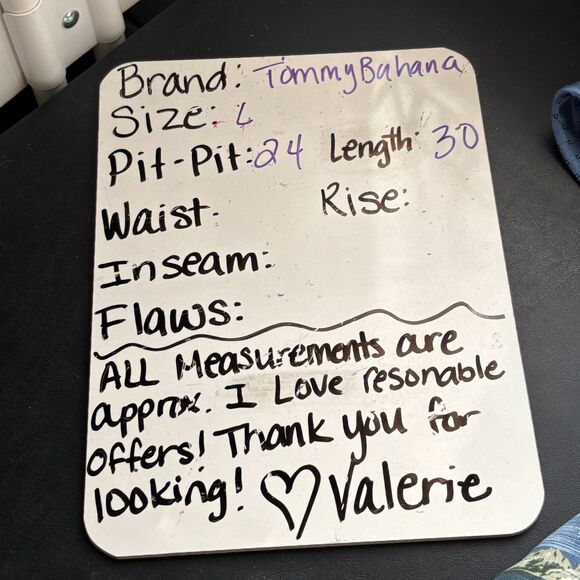 Brand: Tommy Bahana
Size: L
Pit-Pit: 24 Length: 30
Waist: Rise:
Inseam:
Flaws:
ALL Measurements are
approx. I Love resonable
offers! Thank you for
looking! ♡ Valerie